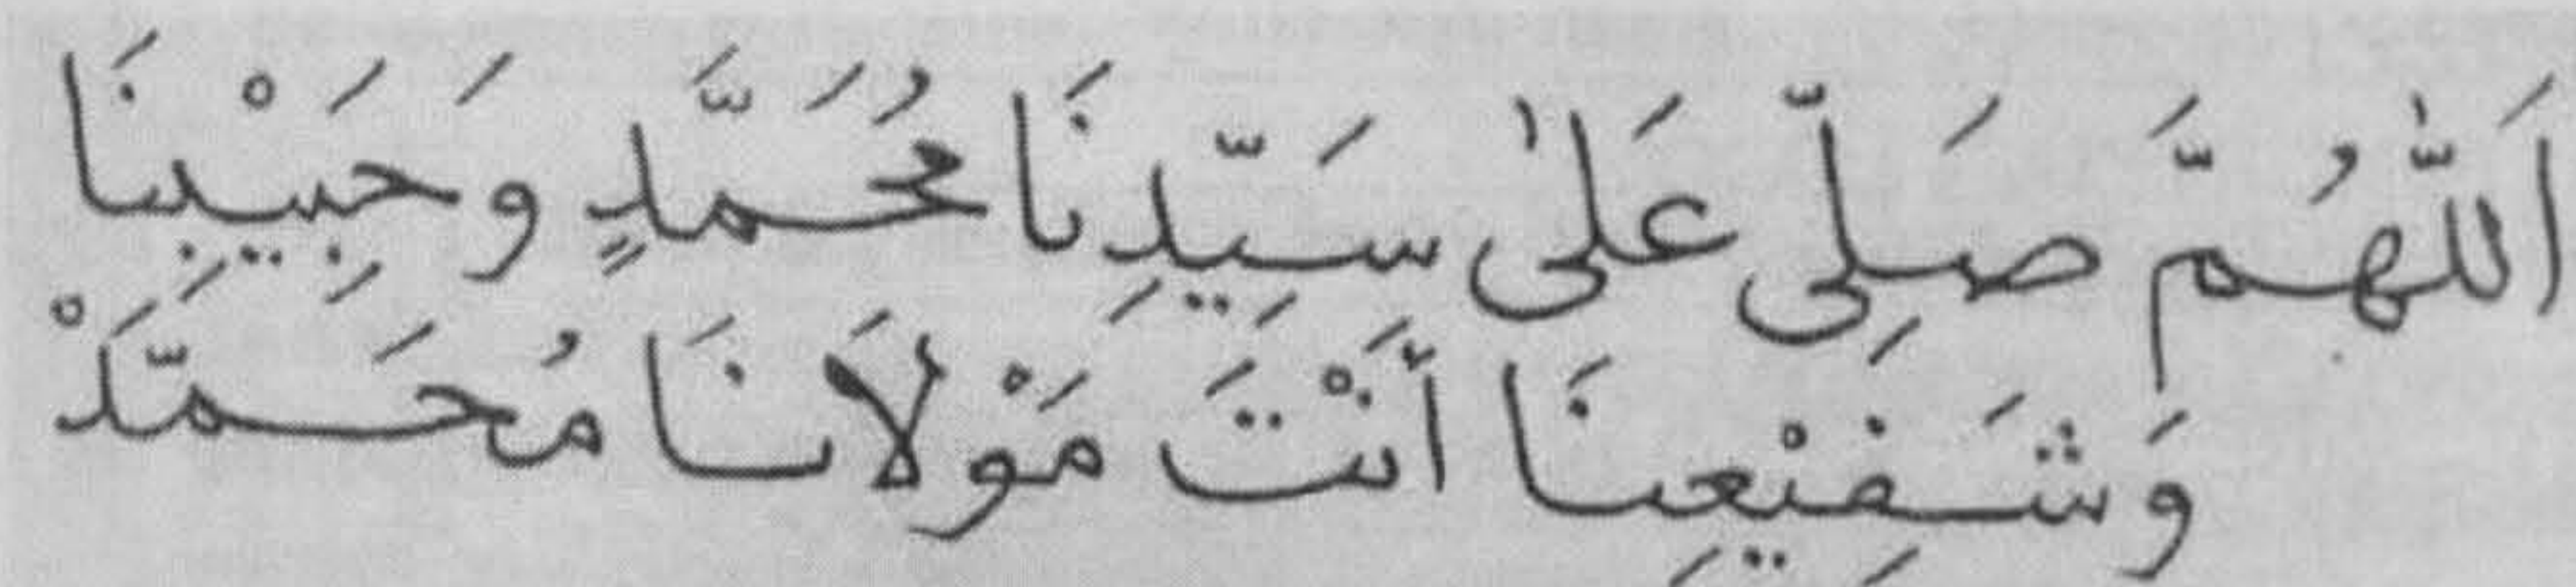 اَللّٰهُمَّ صَلِّى عَلىٰ سَيِّدِنَا مُحَمَّدٍ وَحَبَِيْبِنَا
وَشَفِيْعِنَا أَنْتَ مَوْلَانَا مُحَمَّدَْ